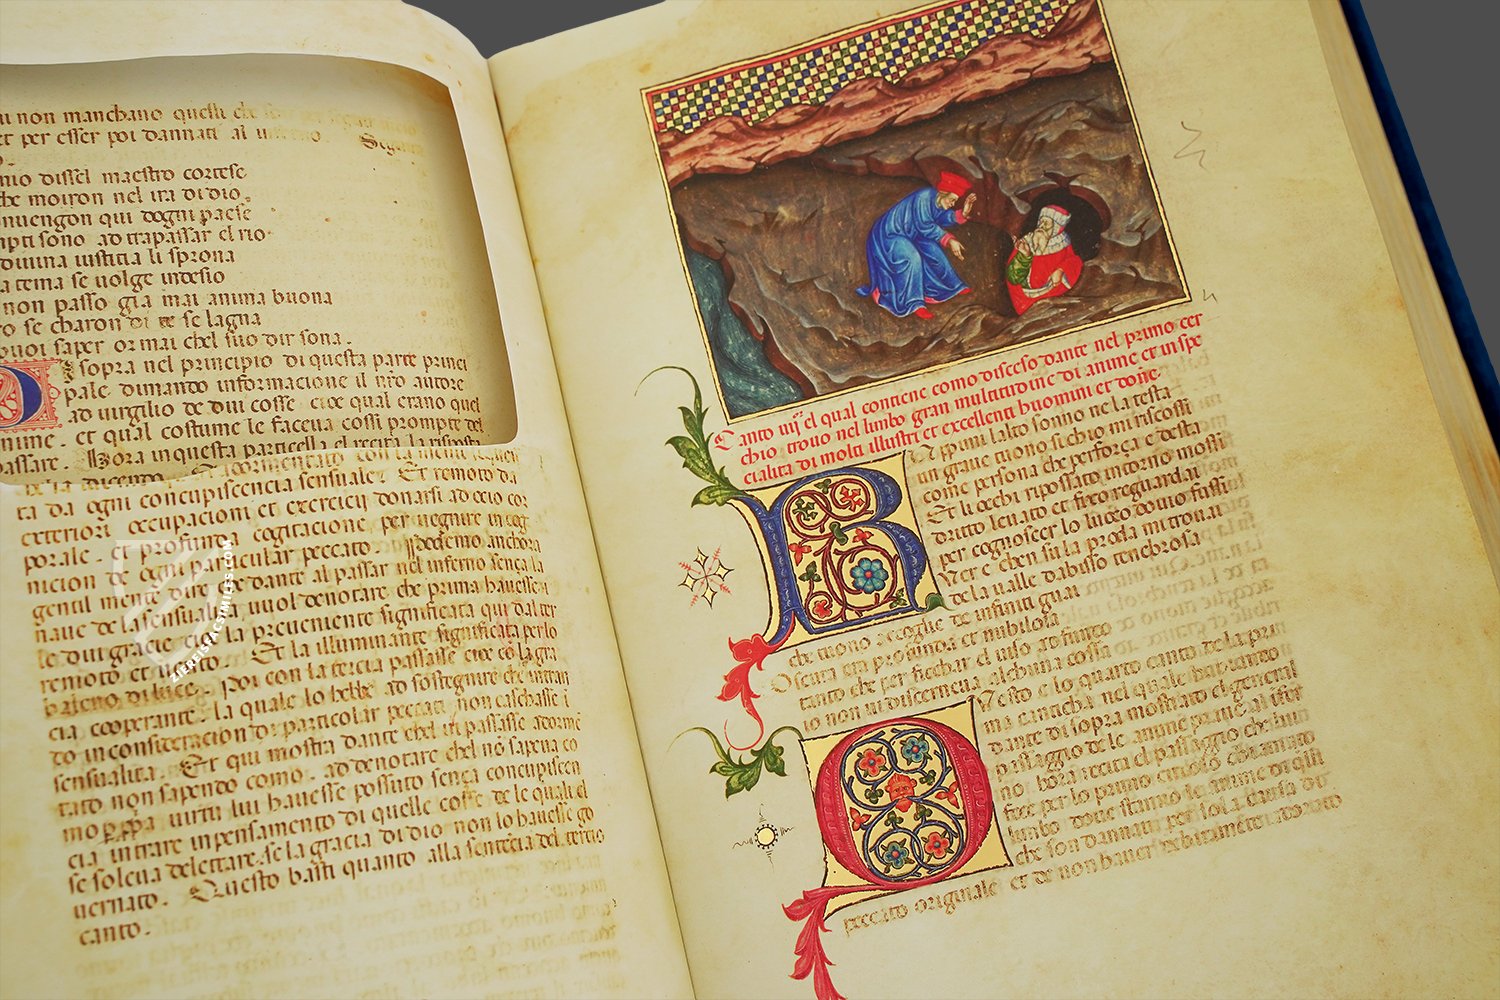 non manchano quelli che
et per esser poi dannati al
mio disse l maestro cortese
che moiron nel ira di dio
qui dogni paese
sono ad trapassar el rio
divina iustitia li sprona
tema se volge in desio
non passo gia mai anima buona
se charon di te se lagna
puoi saper ormai chel suo dir sona.
sopra nel principio di questa parte princi
pale dimando informacione il nro autore
ad virgilio de dui cosse cioe qual erano quel
anime. et qual costume le faceva cossi prompte del
passare. Hora in questa particella el recita la risposta
ta da ogni concupiscencia sensuale. Et remoto da
exteriori occupacioni et exercicij donarsi ad ocio cor
porale. et profunda cogitacione per vegnire in cog
nicion de ogni particular peccato. Podemo anchora
gentil mente dire che dante al passar nel inferno senza la
nave de la sensualita vuol denotare che prima havesse
le dui gracie cioe la preveniente significata qui dal ter
remoto et vento. Et la illuminante significata per lo
baleno di luce. Poi con la tercia passasse cioe con la gra
cia cooperante. la quale lo hebbe ad sostegnire che intran
do in consideracion di particolar peccati non caschasse
sensualita. Et qui mostra dante chel in passasse adorme
tato non sapendo como. ad denotare chel no sapeva co
mo virtu lui havesse possuto senza concupiscen
cia intrare in pensamento di quelle cosse de le quali el
se soleva delettare. se la gracia di dio non lo havesse go
vernato. Questo basti quanto alla sentencia del tercio
canto.
Canto iiij el qual contiene como disceso dante nel primo cer
chio trovo nel limbo gran multitudine di anime et in spe
cialita di molti illustri et excellenti huomini et done
Roppimi lalto sonno ne la testa
un grave tuono si chio mi riscossi
come persona che per forza e desta
Et li occhi ripossato intorno mossi
dritto levato et fiso reguardai
per cognoscer lo luoco dovio fussi
Ver e chen su la proda mi trovai
de la valle dabisso tenebrosa
che tuono accoglie de infiniti guai
Oscura era profonda et nubilosa
tanto che per ficchar el viso ad fundo
io non vi discerneva alchuna cossa
Questo e lo quarto canto de la pri
ma canticha nel quale havendo
dante di sopra mostrato el general
passaggio de le anime prave al ifer
no hora recita el passaggio che lui
fece per lo primo circulo chiamato
limbo dove stanno le anime di qlli
che son dannati per sola causa di
peccato originale et de non haver